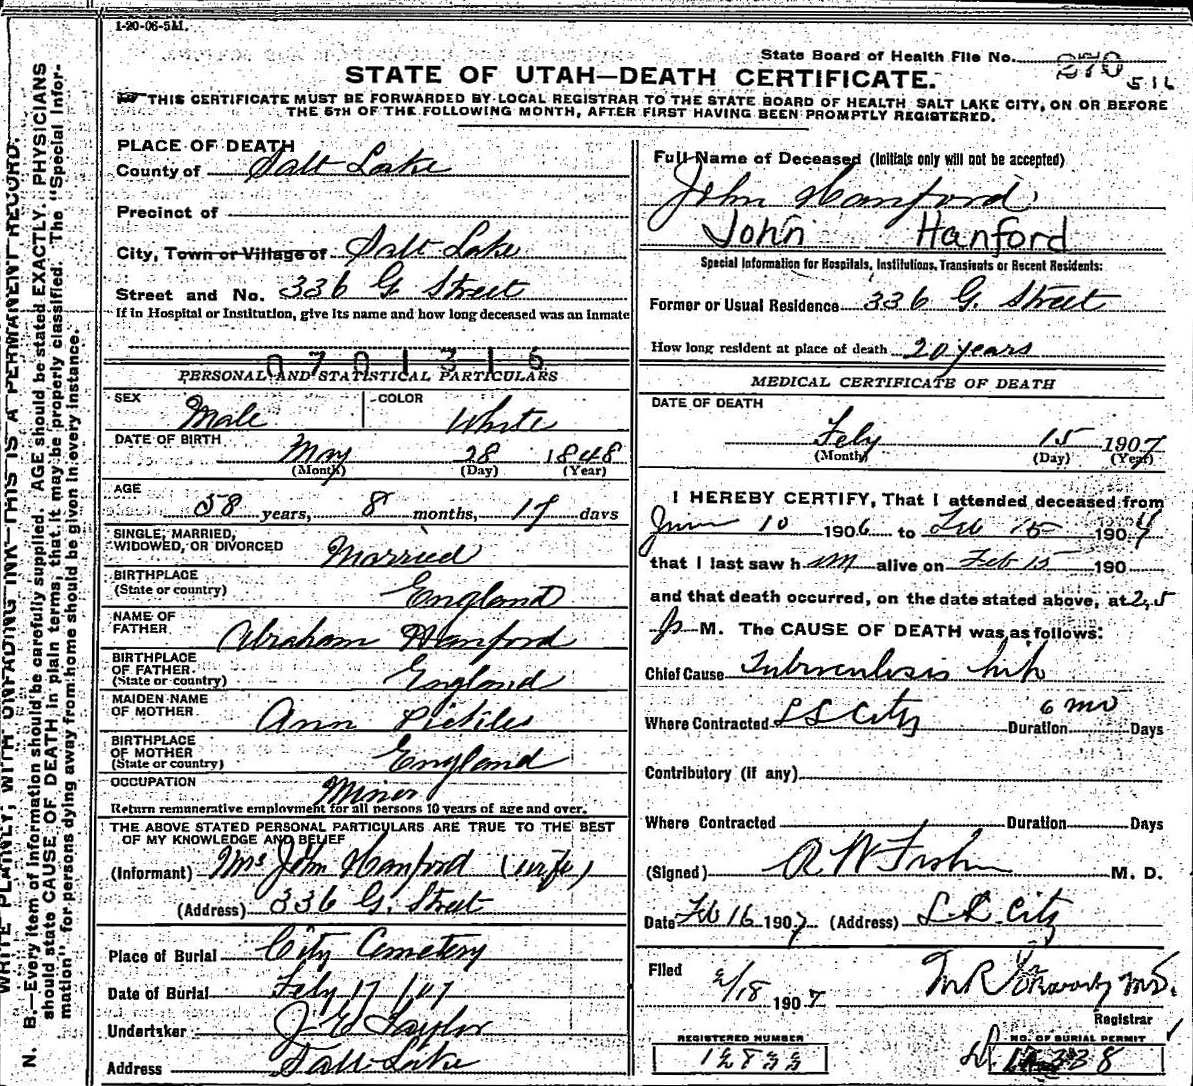 1-20-06-5M.
State Board of Health File No. 270
516
STATE OF UTAH—DEATH CERTIFICATE.
THIS CERTIFICATE MUST BE FORWARDED BY LOCAL REGISTRAR TO THE STATE BOARD OF HEALTH SALT LAKE CITY, ON OR BEFORE
THE 5TH OF THE FOLLOWING MONTH, AFTER FIRST HAVING BEEN PROMPTLY REGISTERED.
WRITE PLAINLY, WITH UNFADING INK—THIS IS A PERMANENT RECORD.
N. B.—Every item of information should be carefully supplied. AGE should be stated EXACTLY. PHYSICIANS
should state CAUSE OF DEATH in plain terms, that it may be properly classified. The "Special Infor-
mation" for persons dying away from home should be given in every instance.
PLACE OF DEATH
County of Salt Lake
Precinct of
City, Town or Village of Salt Lake
Street and No. 336 G Street
If in Hospital or Institution, give its name and how long deceased was an inmate
0701316
PERSONAL AND STATISTICAL PARTICULARS
SEX Male COLOR White
DATE OF BIRTH May 28 1848
(Month) (Day) (Year)
AGE 58 years, 8 months, 17 days
SINGLE, MARRIED,
WIDOWED, OR DIVORCED Married
BIRTHPLACE
(State or country) England
NAME OF
FATHER Abraham Hanford
BIRTHPLACE
OF FATHER
(State or country) England
MAIDEN NAME
OF MOTHER Ann
BIRTHPLACE
OF MOTHER
(State or country) England
OCCUPATION Miner
Return remunerative employment for all persons 10 years of age and over.
THE ABOVE STATED PERSONAL PARTICULARS ARE TRUE TO THE BEST
OF MY KNOWLEDGE AND BELIEF
(Informant) Mrs John Hanford (wife)
(Address) 336 G. Street
Place of Burial City Cemetery
Date of Burial Feby 17 1907
Undertaker Taylor
Address Salt Lake
Full Name of Deceased (Initials only will not be accepted)
John Hanford
John Hanford
Special Information for Hospitals, Institutions, Transients or Recent Residents:
Former or Usual Residence 336 G. Street
How long resident at place of death 20 years
MEDICAL CERTIFICATE OF DEATH
DATE OF DEATH
Feby 15 1907
(Month) (Day) (Year)
I HEREBY CERTIFY, That I attended deceased from
June 10 1906 to Feb 15 1907
that I last saw h im alive on Feb 15 190
and that death occurred, on the date stated above, at 2,5
p M. The CAUSE OF DEATH was as follows:
Chief Cause Tuberculosis hip
Where Contracted S L City Duration 6 mo Days
Contributory (if any)
Where Contracted Duration Days
(Signed) M. D.
Date Feb 16 1907 (Address) S. L. City
Filed 2/18 1907
Registrar
REGISTERED NUMBER
NO. OF BURIAL PERMIT